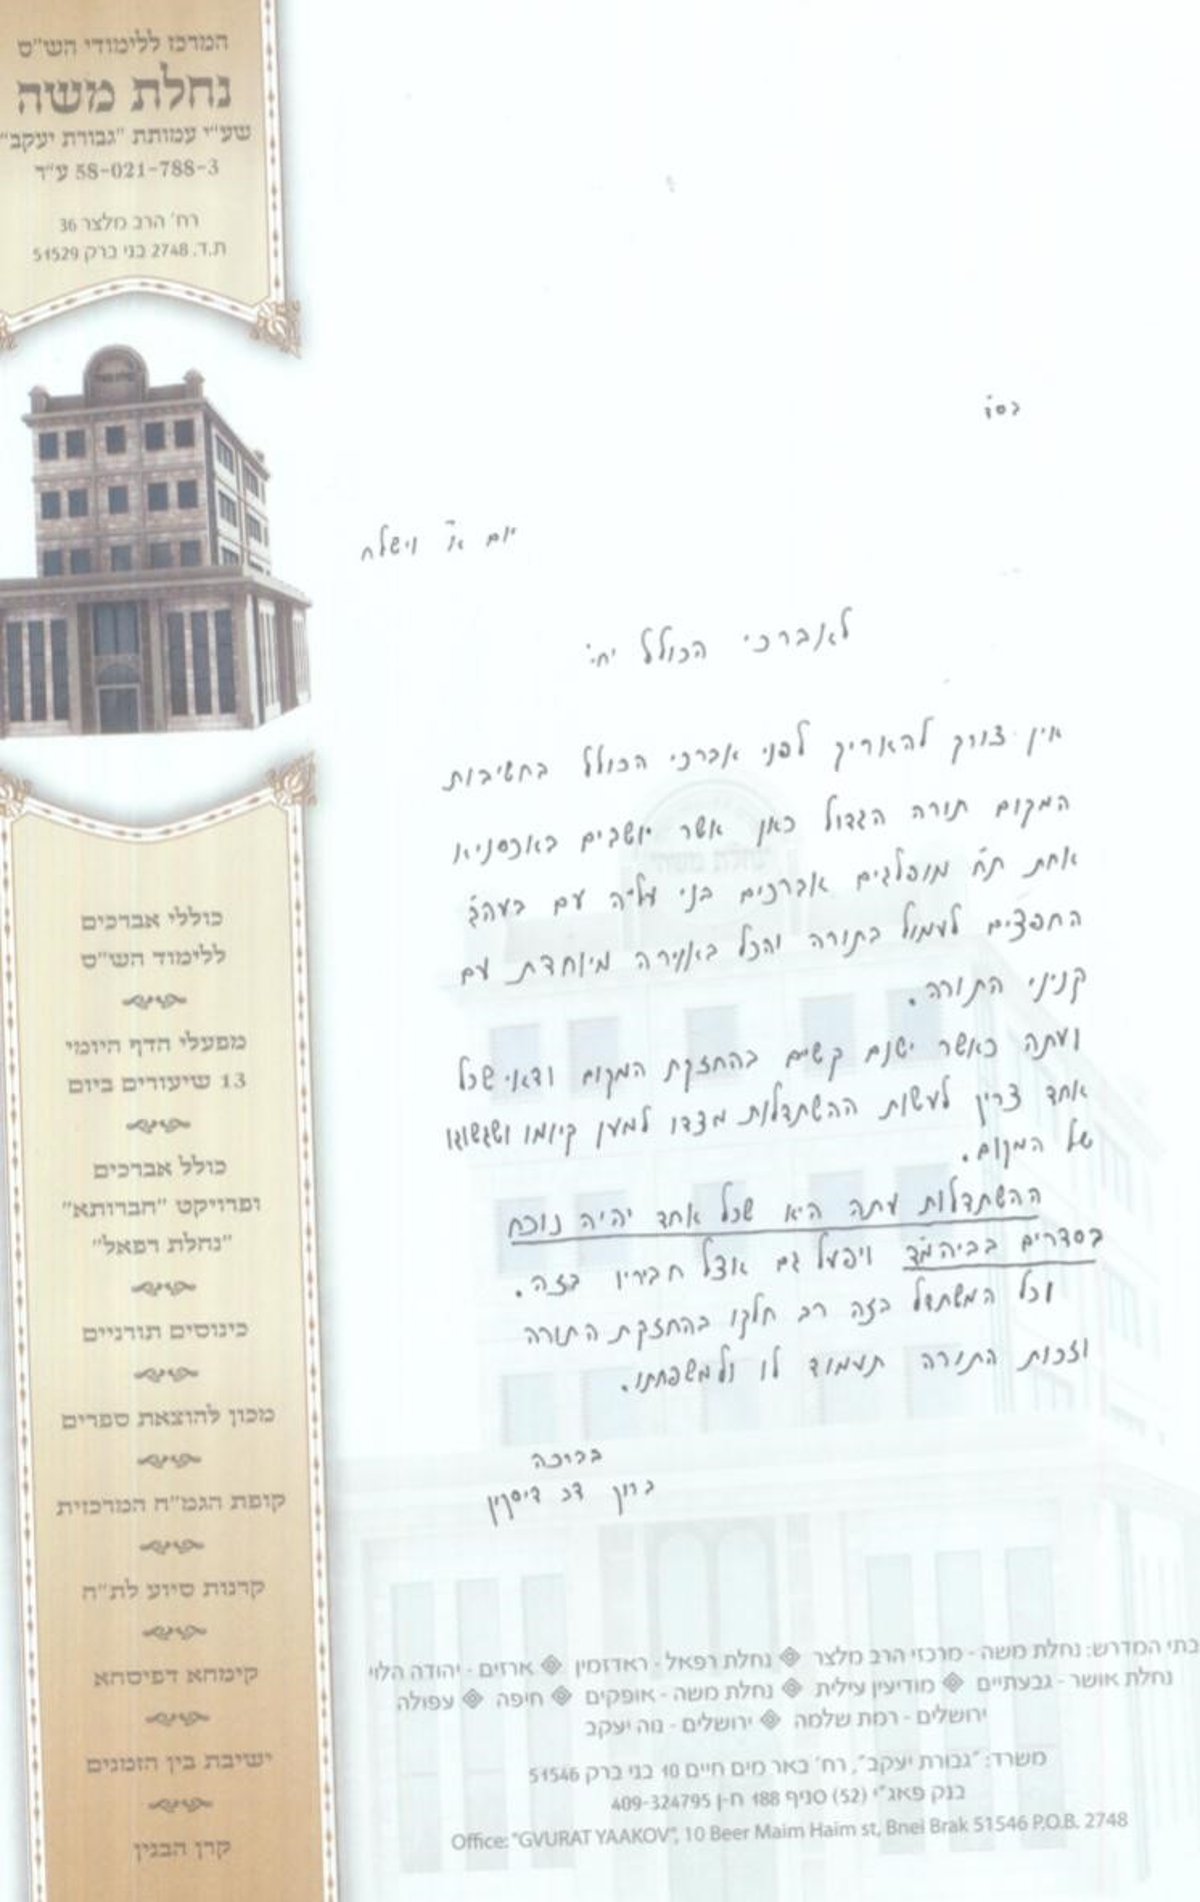 המרכז ללימודי הש"ס
נחלת משה
שע"י עמותת "גבורת יעקב"
ע"ר 58-021-788-3
רח' הרב מלצר 36
ת.ד. 2748 בני ברק 51529
בס"ד
יום א' וישלח
לאברכי הכולל יחי'
אין צורך להאריך לפני אברכי הכולל בחשיבות
המקום תורה הגדול כאן אשר יושבים באכסניא
אחת ת"ח מופלגים אברכים בני עליה עם בעהב"
החפצים לעמול בתורה והכל באוירה מיוחדת עם
קניני התורה.
ועתה כאשר ישנם קשיים בהחזקת המקום ודאי שכל
אחד צריך לעשות ההשתדלות מצדו למען קיומו ושגשוגו
של המקום.
ההשתדלות עתה היא שכל אחד יהיה נוכח
בסדרים בביהמ"ד ויפעל גם אצל חביריו בזה.
וכל המשתדל בזה רב חלקו בהחזקת התורה
וזכות התורה תעמוד לו ולמשפחתו.
בברכה
ברוך דב דיסקין
כוללי אברכים
ללימוד הש"ס
מפעלי הדף היומי
13 שיעורים ביום
כולל אברכים
ופרוייקט "חברותא"
"נחלת רפאל"
כינוסים תורניים
מכון להוצאת ספרים
קופת הגמ"ח המרכזית
קרנות סיוע לת"ח
קימחא דפיסחא
ישיבת בין הזמנים
קרן הבנין
בתי המדרש: נחלת משה - מרכזי הרב מלצר ◈ נחלת רפאל - ראדזמין ◈ ארזים - יהודה הלוי
נחלת אושר - גבעתיים ◈ מודיעין עילית ◈ נחלת משה - אופקים ◈ חיפה ◈ עפולה
ירושלים - רמת שלמה ◈ ירושלים - נוה יעקב
משרד: "גבורת יעקב", רח' באר מים חיים 10 בני ברק 51546
בנק פאג"י (52) סניף 188 ח-ן 409-324795
Office: "GVURAT YAAKOV", 10 Beer Maim Haim st, Bnei Brak 51546 P.O.B. 2748